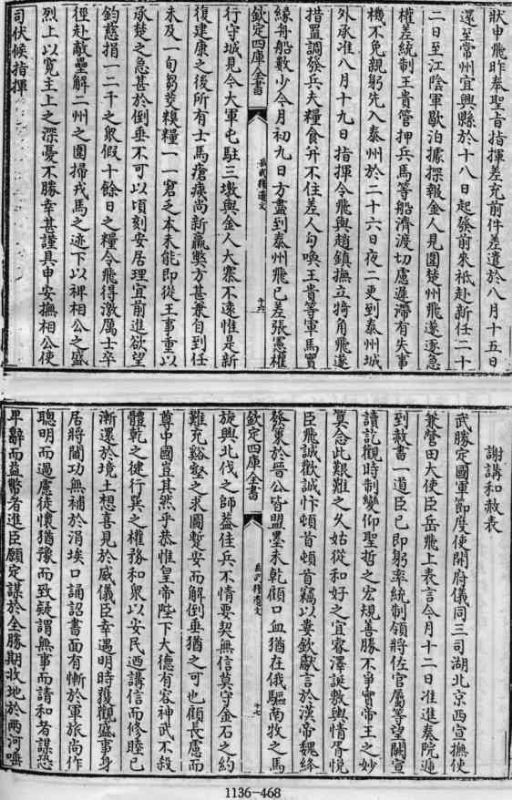 狀申飛昨奉聖旨指揮差充前件差遣於八月十五日
還至常州宜興縣於十八日起發前來祗赴新任二十
二日至江陰軍歇泊據探報金人見圍楚州飛遂逐急
權差統制王貴管押兵馬等船濟渡切慮遲滯有失事
機不免親躬先入泰州於二十六日夜二更到泰州城
外承准八月十九日指揮令飛與趙鎮撫立掎角飛遂
措置調發兵夫糧食并不住差人勾喚王貴等軍馬實
緣舟船數少今月初九日方盡到泰州飛已差張憲權
欽定四庫全書
岳武穆遺文
十六
行守城見今大軍屯駐三墩與金人大寨不遠惟是新
復建康之後所有士馬瘡痍尚新羸憋方甚兼自到任
未及一旬芻茭糗糧一一窘乏本未能即從王事重以
承楚之急甚於倒垂不可以頃刻安居理宜前進欲望
鈞慈捐一二千之衆假十餘日之糧令飛得激厲士卒
徑赴敵壘解二州之圍掃戎馬之迹下以裨相公之盛
烈上以寛主上之深憂不勝幸甚謹具申安撫相公使
司伏候指揮
謝講和赦表
武勝定國軍節度使開府儀同三司湖北京西宣撫使
兼營田大使臣岳飛上表言今月十二日准進奏院遞
到赦書一道臣已即躬率統制領將佐官屬等望闕宣
讀訖觀時制變仰聖哲之宏規善勝不爭實帝王之妙
算念此艱難之久姑從和好之宜睿澤誕敷輿情胥悅
臣飛誠歡誠忭頓首頓首竊以婁欽獻言於漢帝魏絳
發策於晉公皆盟墨未乾顧口血猶在俄驅南牧之馬
旋興北伐之師蓋仹兵不情要契無信莫守金石之約
欽定四庫全書
岳武穆遺文
十七
難充谿壑之求圖暫安而解倒垂猶之可也顧長慮而
尊中國豈其然乎恭惟皇帝陛下大德有容神武不殺
體乾之健行巽之權務和衆以安民迺講信而修睦已
漸還於境土想喜見於威儀臣幸遇明時獲觀盛事身
居將閫功無補於涓埃口誦詔書面有慚於軍旅尚作
聰明而過慮徒懷猶豫而致疑謂無事而請和者謀恐
卑辭而益幣者進臣願定謀於全勝期收地於兩河唾
1136-468